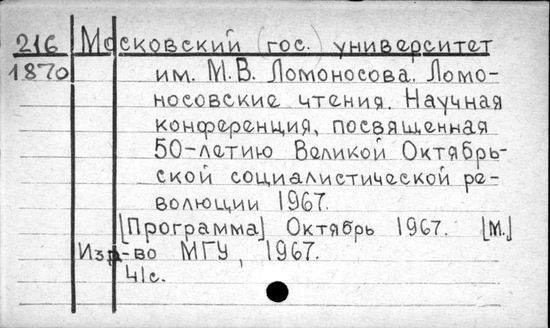 216 Московский (гос.) университет
1870 им. М.В. Ломоносова. Ломо-
носовские чтения. Научная
конференция, посвященная
50-летию Великой Октябрь-
ской социалистической ре-
волюции 1967.
[Программа] Октябрь 1967. [М.]
Изд-во МГУ, 1967.
41с.